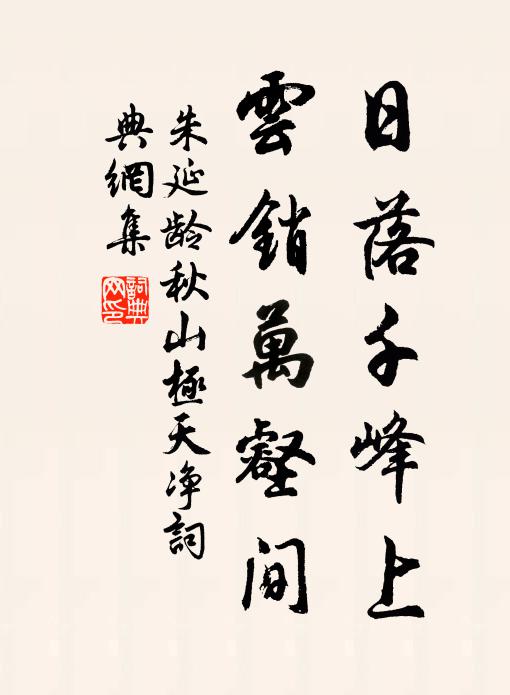 日落千峰上
雲銷萬壑間
朱延龄秋山極天净詞
典網集
詞典
网印